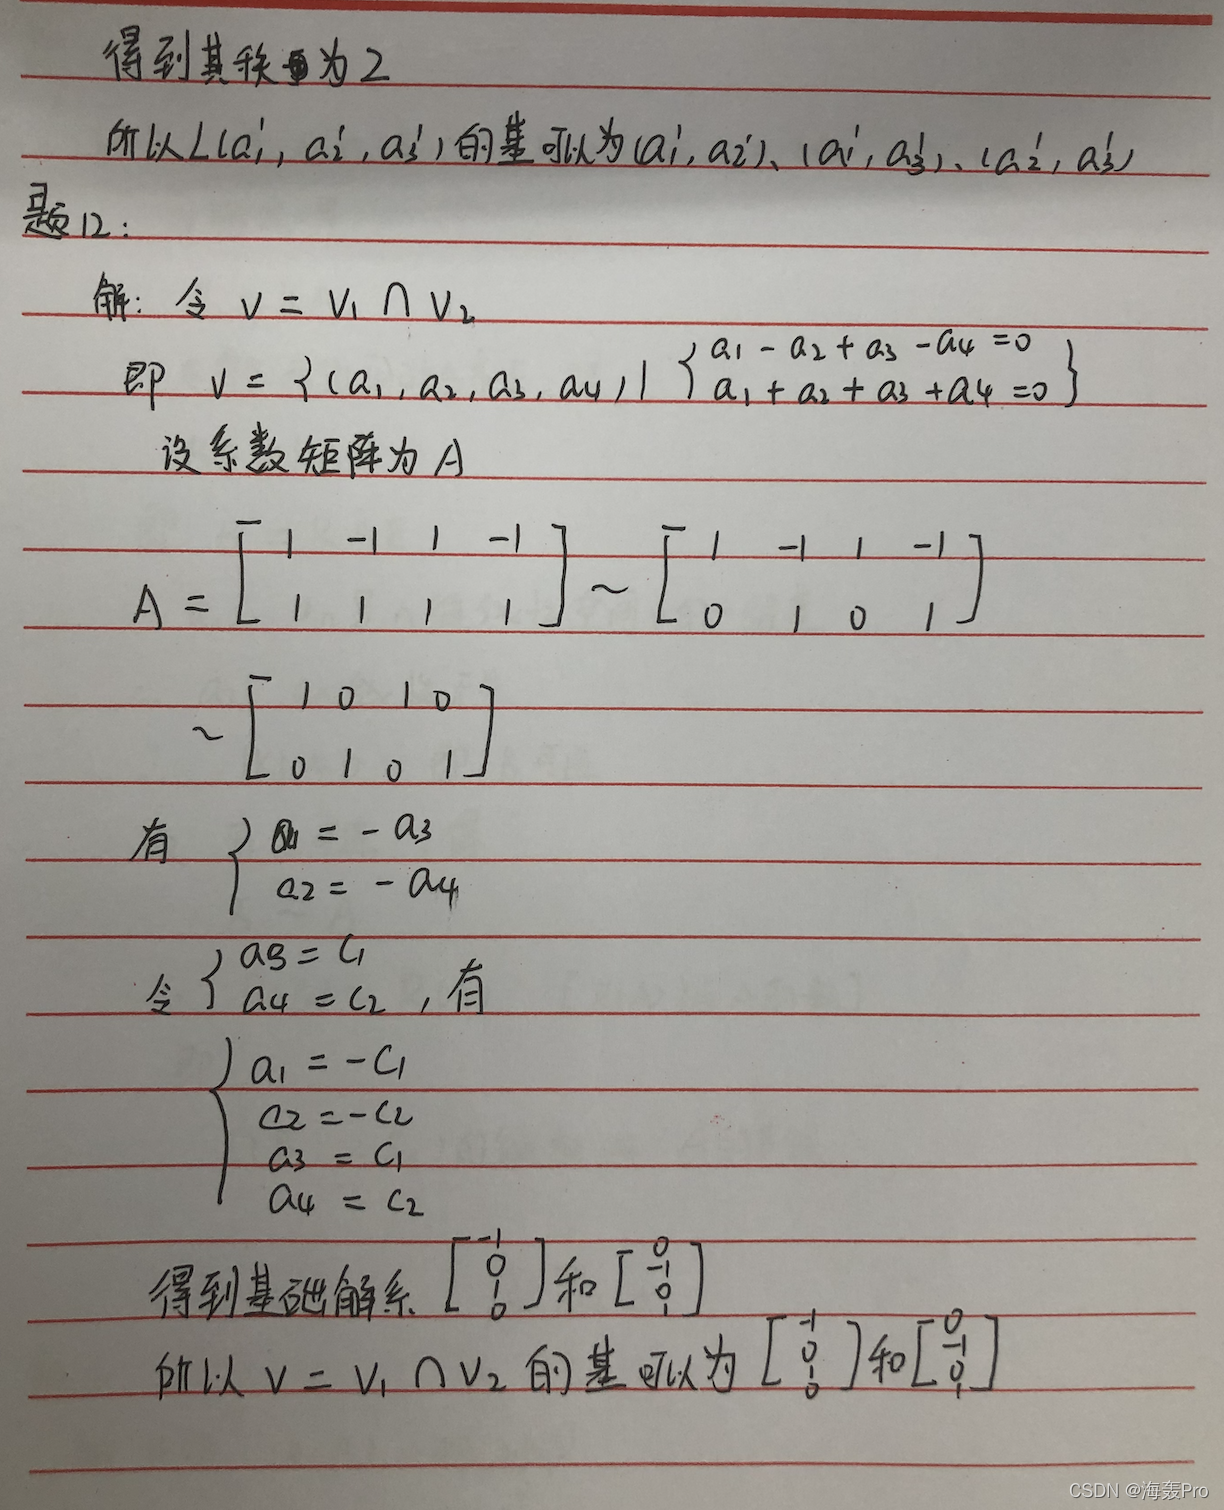 得到其秩为2
所以L(a₁', a₂', a₃')的基可以为(a₁', a₂')、(a₁', a₃')、(a₂', a₃')
题12:
解: 令 V = V₁ ∩ V₂
即 V = {(a₁, a₂, a₃, a₄) | { a₁ - a₂ + a₃ - a₄ = 0
a₁ + a₂ + a₃ + a₄ = 0 }
设系数矩阵为A
A = [ 1 -1 1 -1
1 1 1 1 ] ~ [ 1 -1 1 -1
0 1 0 1 ]
~ [ 1 0 1 0
0 1 0 1 ]
有 { a₁ = - a₃
a₂ = - a₄
令 { a₃ = C₁
a₄ = C₂ , 有
{ a₁ = -C₁
a₂ = -C₂
a₃ = C₁
a₄ = C₂
得到基础解系 [ -1 0 1 0 ] 和 [ 0 -1 0 1 ]
所以 V = V₁ ∩ V₂ 的基可以为 [ -1 0 1 0 ] 和 [ 0 -1 0 1 ]
CSDN @海轰Pro